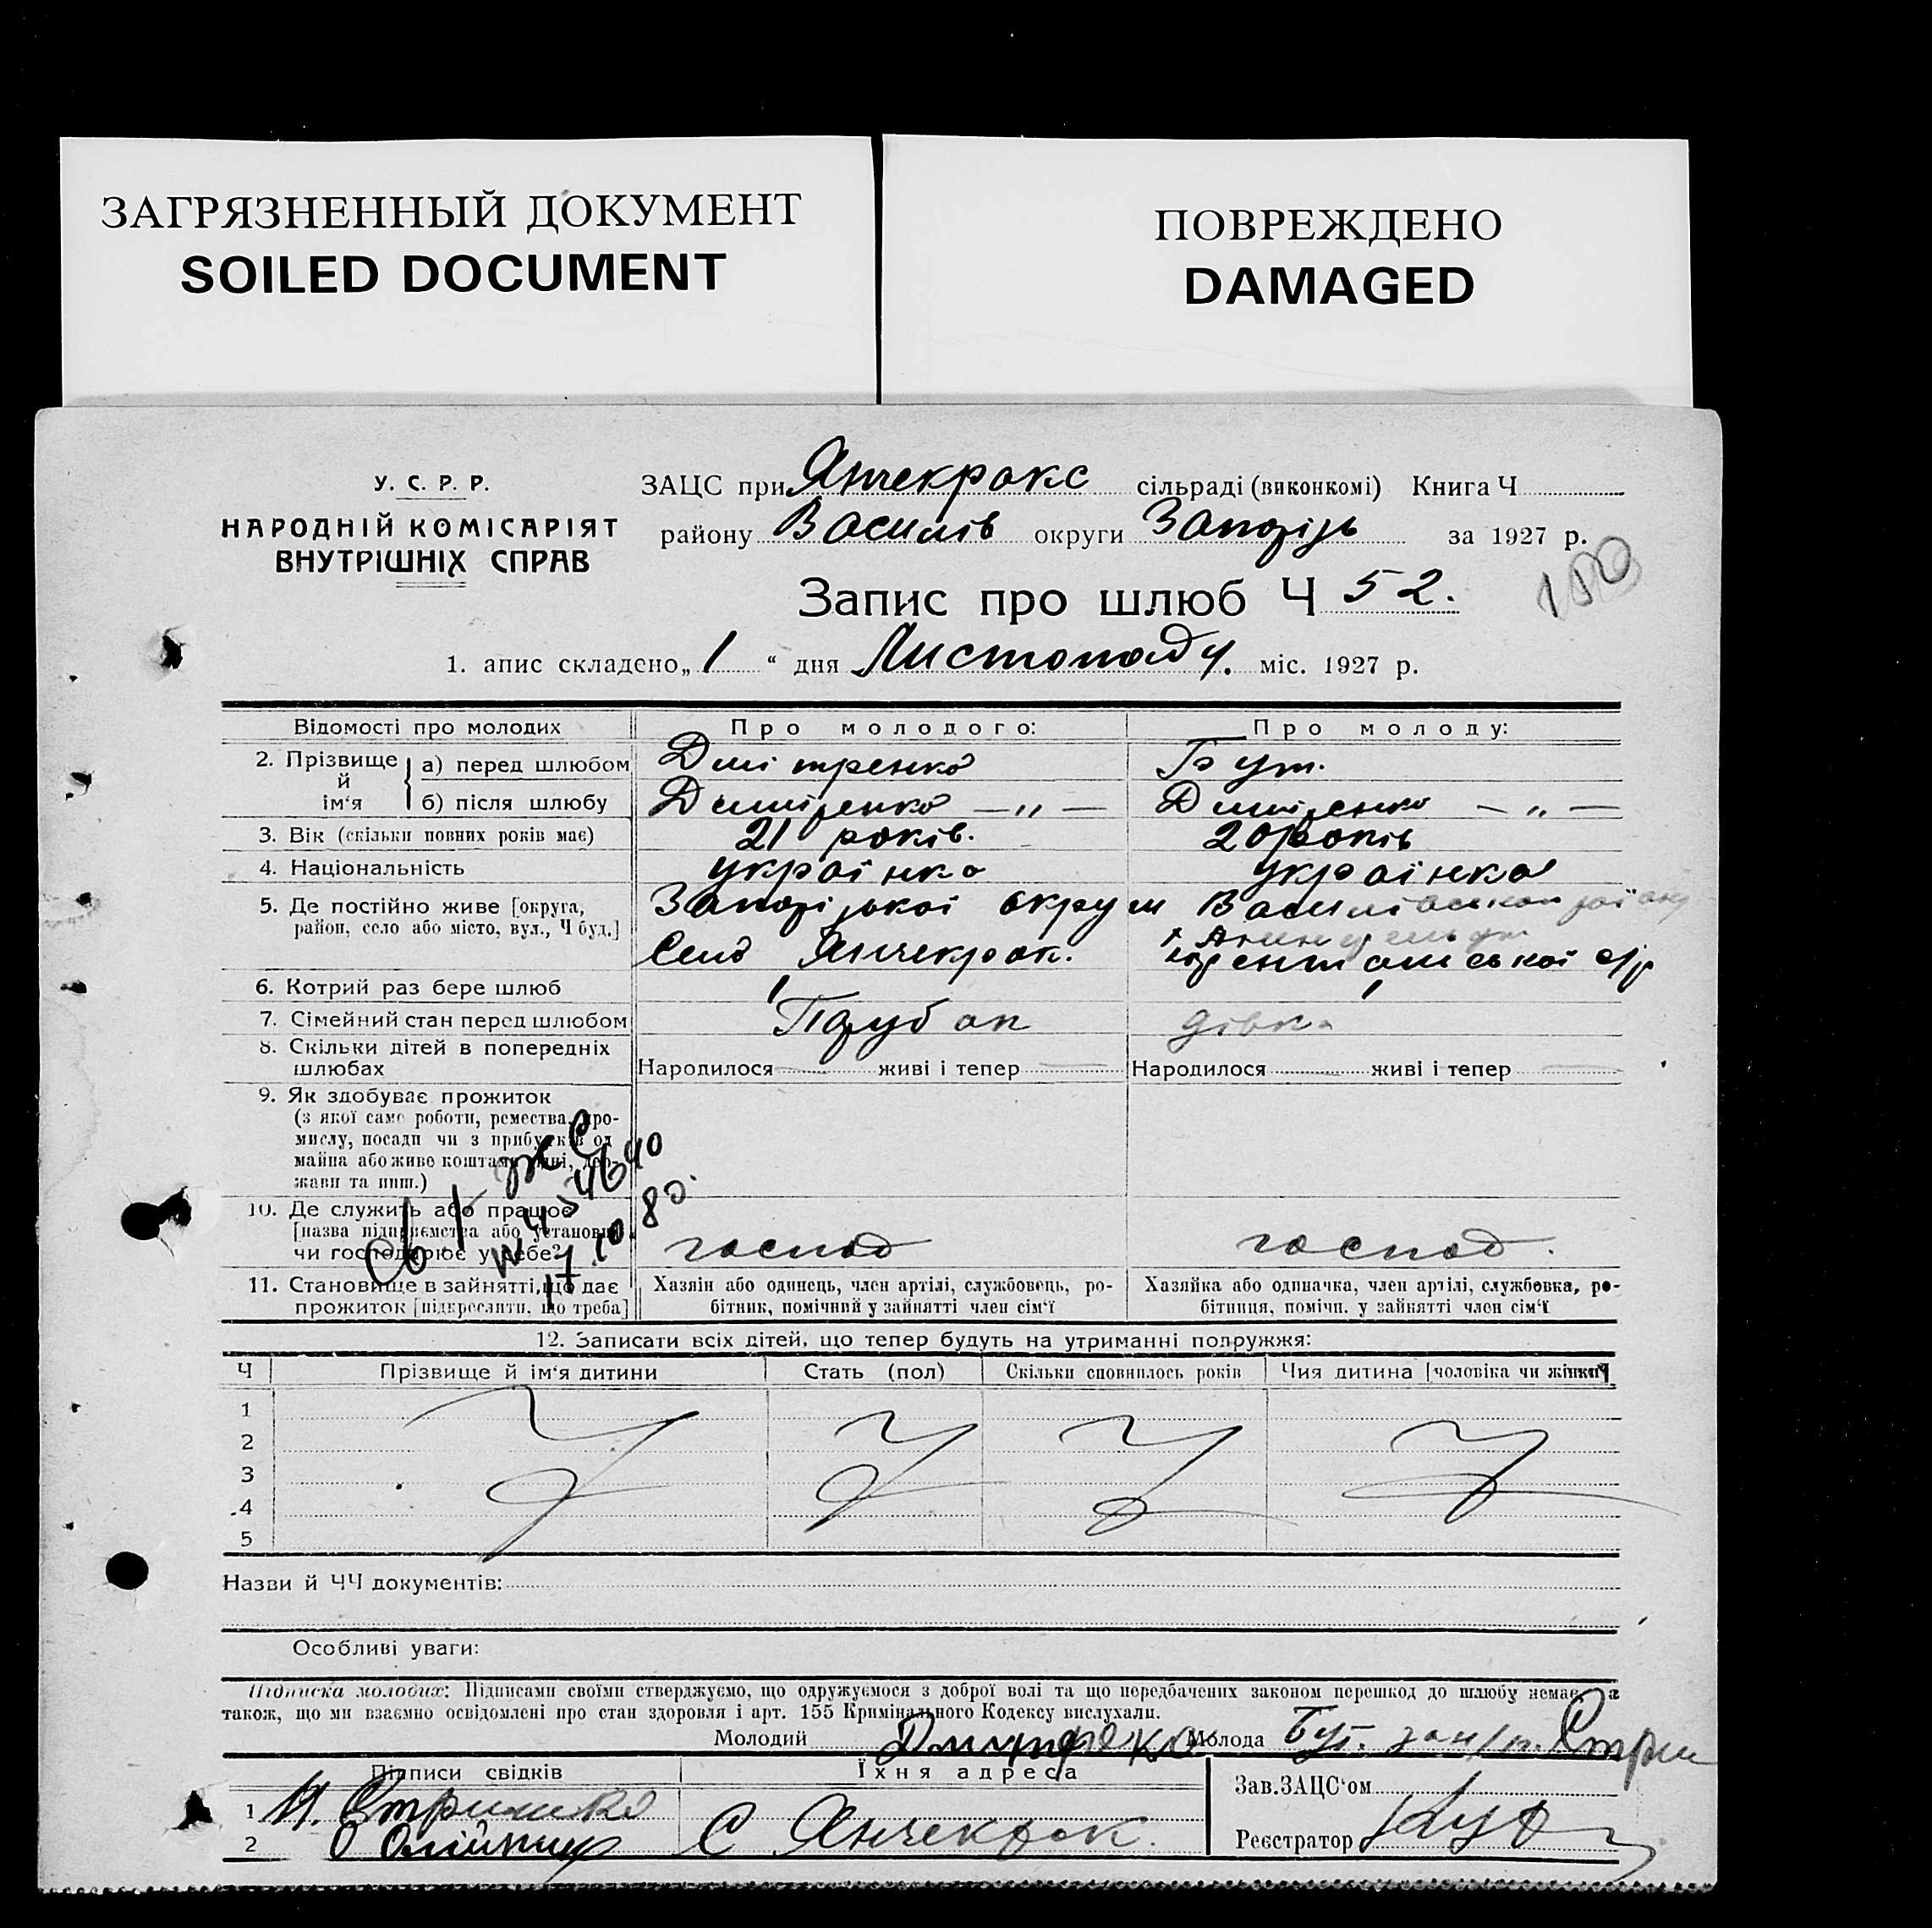 ЗАГРЯЗНЕННЫЙ ДОКУМЕНТ
SOILED DOCUMENT
ПОВРЕЖДЕНО
DAMAGED
У. С. Р. Р.
НАРОДНІЙ КОМІСАРІЯТ
ВНУТРІШНІХ СПРАВ
ЗАЦС при Янчекракс сільраді (виконкомі) Книга Ч
району Василів округи Запоріз за 1927 р.
Запис про шлюб Ч 52.
1. апис складено „ 1 “ дня Листопаду. міс. 1927 р.
Відомості про молодих Про молодого: Про молоду:
2. Прізвище й ім‘я
а) перед шлюбом Дмітренко Бут.
б) після шлюбу Дмитренко — „ — Дмитренко — „ —
3. Вік (скільки повних років має) 21 років. 20 років
4. Національність українка українка
5. Де постійно живе [округа, район, село або місто, вул., Ч буд.] Запорізької округи Василівського району
Село Янчекрак.
6. Котрий раз бере шлюб 1 1
7. Сімейний стан перед шлюбом Парубок дівка
8. Скільки дітей в попередніх шлюбах Народилося живі і тепер Народилося живі і тепер
9. Як здобуває прожиток
(з якої саме роботи, ремества, про-
мислу, посади чи з прибутків од
майна або живе коштами інші, дер-
жави та инш.)
10. Де служить або працює
[назва підприємства або установи]
чи господарює у себе? господ господ.
11. Становище в зайнятті, що дає
прожиток [підкреслити, що треба]
Хазяін або одинець, член артілі, службовець, ро-
бітник, помічний у зайнятті член сім‘ї
Хазяйка або одиначка, член артілі, службовка, ро-
бітниця, помічн. у зайнятті член сім‘ї
12. Записати всіх дітей, що тепер будуть на утриманні подружжя:
Ч Прізвище й ім‘я дитини Стать (пол) Скільки сповнилось років Чия дитина [чоловіка чи жінки]
1
2
3
4
5
Назви й ЧЧ документів:
Особливі уваги:
Підписка молодих: Підписами своїми стверджуємо, що одружуємося з доброї волі та що передбачених законом перешкод до шлюбу немає, а
також, що ми взаємно освідомлені про стан здоровля і арт. 155 Кримінального Кодексу вислухали.
Молодий Молода Бут.
Підписи свідків Їхня адреса
1
2 С Янчекрак.
Зав.ЗАЦС‘ом
Реєстратор